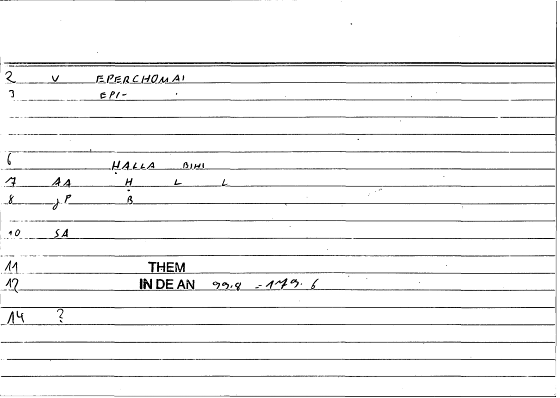 2 V EPERCHOMAI
3 EPI-
6 ḤALLA BIHI
7 AA Ḥ L L
8 JP B
10 SA
11 THEM
12 IN DE AN 99.8 = 179.6
14 ?